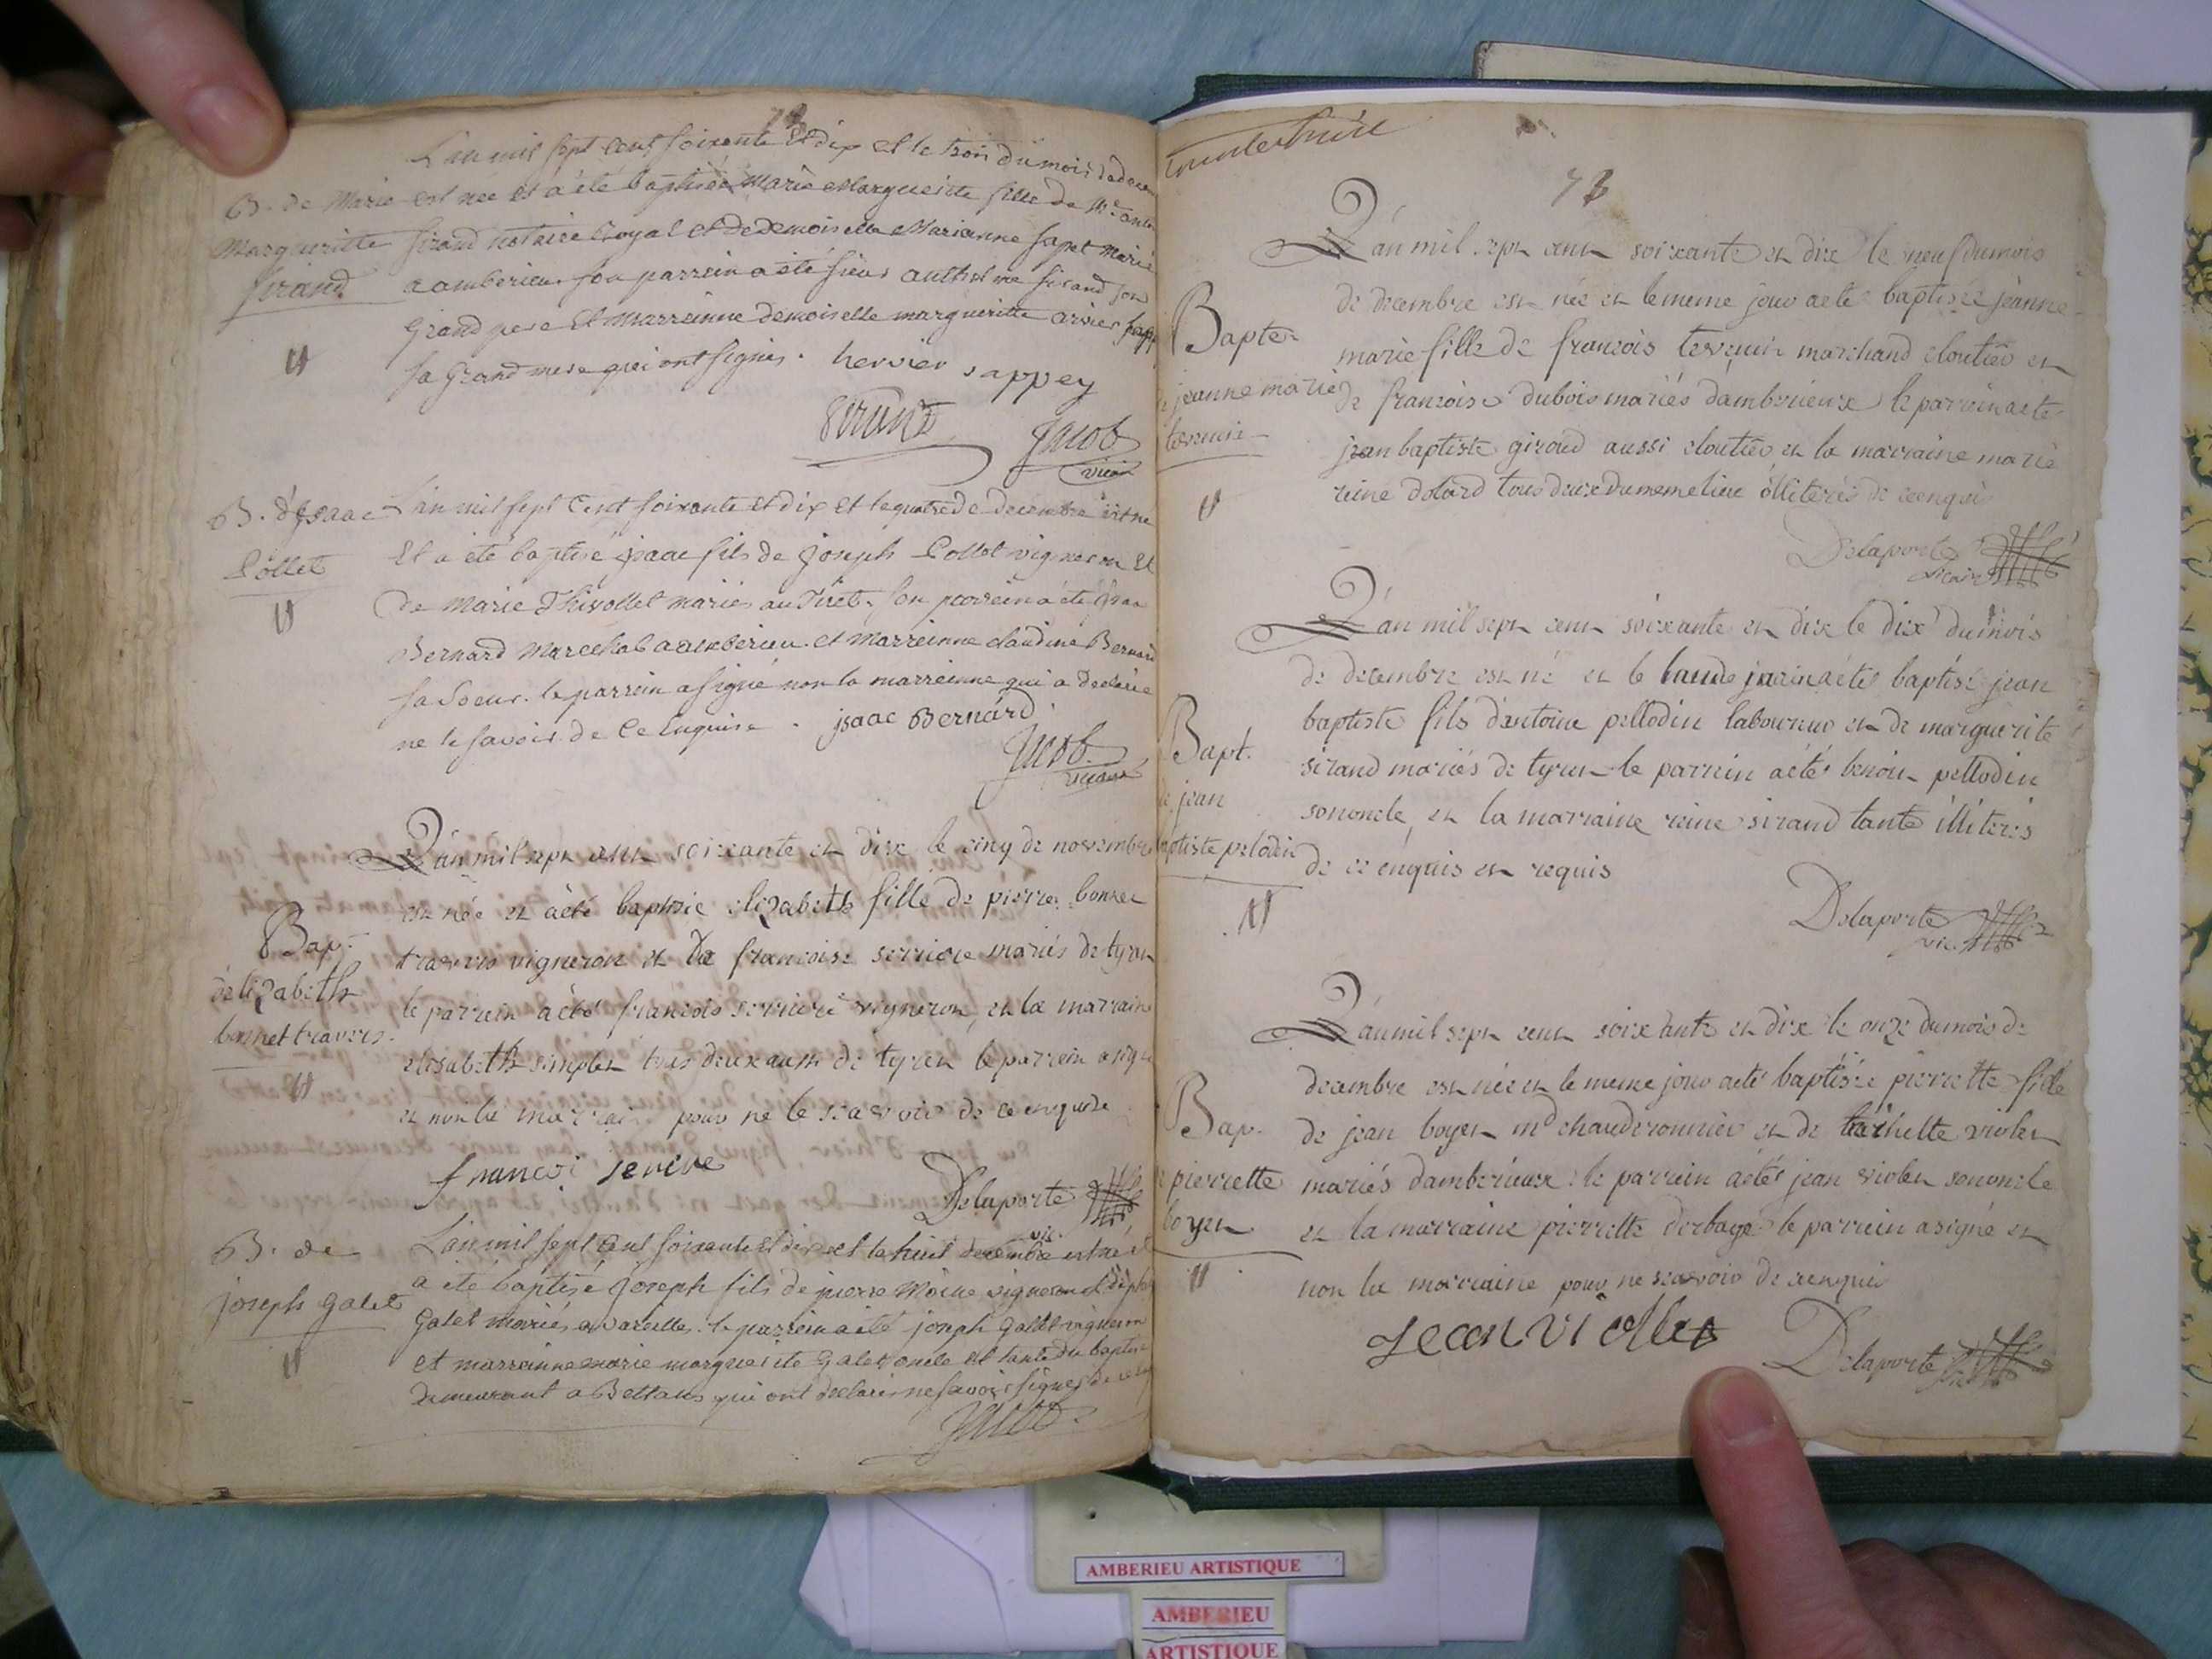 L'an mil sept cent soixante et dix et le trois du mois de decem
B. de Marie
Margueritte
sirand
est née et a été baptisée Marie Margueritte fille de Me anth
sirand notaire Royal et de Demoiselle Marianne sapet mariés
a amberieu son parrein a été sieur anthelme sirand son
Grand pere et Marreinne demoiselle margueritte
sa Grand mere qui ont signés. hervier sappey
sirand
Jacob
vicaire
B. d'Isaac
Pollet
L'an mil sept Cent soixante et dix et le quatre de decembre est né
Et a été baptisé isaac fils de joseph Pollet vigneron Et
de Marie Thivollet mariés au Tiret. son parrein a été isaac
Bernard Marechal a amberieu et Marreinne claudine Bernard
sa Soeur. le parrein a signé non la marreinne qui a declaré
ne le savoir de Ce Enquise. jsaac Bernard.
Jacob
vicaire
Bap.
d'elizabeth
bonnet travers.
L'an mil sept cent soixante et dix le cinq de novembre
est née et a été baptisée elizabeth fille de pierre bonnet
travers vigneron et de francoise serriere mariés de tyret
le parrein a été francois serriere vigneron, et la marraine
elisabeth simplet tous deux aussi de tyret le parrein a signé
et non la marraine pour ne le scavoir de ce enquise
francoi serière
Delaporte
vic.
B. de
joseph galet
L'an mil sept Cent soixante et dix et le huit decembre est né et
a été baptisé joseph fils de pierre Moine vigneron et
Galet mariés a vareilles. le parrein a été joseph Gallet vigneron
et marreinne marie margueritte Galet oncle et tante du baptisé
demeurant a Bettans qui ont declarés ne savoir signer de ce
Jacob.
73
L'an mil sept cent soixante et dix le neuf du mois
Bapte
de jeanne marie
tervenin
de decembre est née et le meme jour a eté baptisée jeanne
marie fille de francois tervenin marchand cloutier et
de francoise dubois mariés d'amberieux le parrein a eté
jean baptiste giroud aussi cloutier et la marraine marie
reine dolard tous deux du meme lieu illiterés de ce enquis
Delaporte
vicaire
L'an mil sept cent soixante et dix le dix du mois
Bapt.
de jean
baptiste pelodin
de decembre est né et le a été baptisé jean
baptiste fils d'antoine pellodin laboureur et de marguerite
sirand mariés de tyret le parrein a été benoit pellodin
son oncle, et la marraine reine sirand tante illiterés
de ce enquis et requis
Delaporte
vic.
L'an mil sept cent soixante et dix le onze du mois de
Bap.
de pierrette
boyet
decembre est née et le meme jour a été baptisée pierrette fille
de jean boyet md chauderonnier et de violet
mariés d'amberieux le parrein a été jean violet son oncle
et la marraine pierrette derbage le parrein a signé et
non la marraine pour ne scavoir de ce enquis
Jean viollet
Delaporte
AMBERIEU ARTISTIQUE
AMBERIEU
ARTISTIQUE